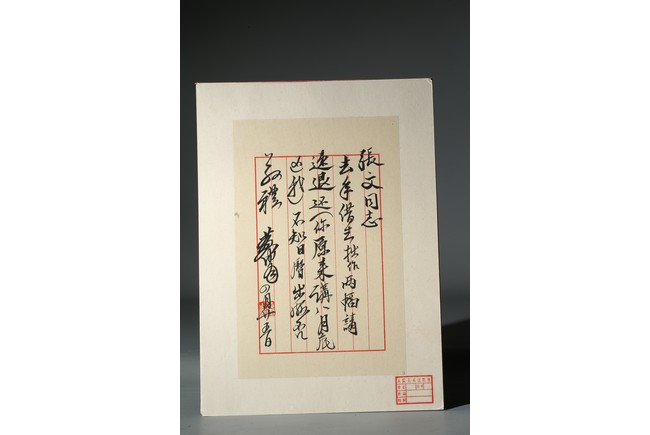 張文同志
去年借去拙作两幅請
速退还(你原来講八月底
还我)不知日曆出版否
敬禮
四月廿五日